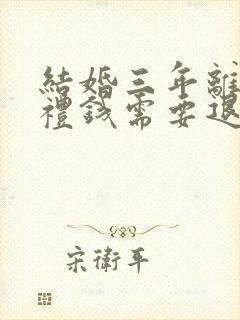 結婚三年離
禮錢需要退
宋衛平